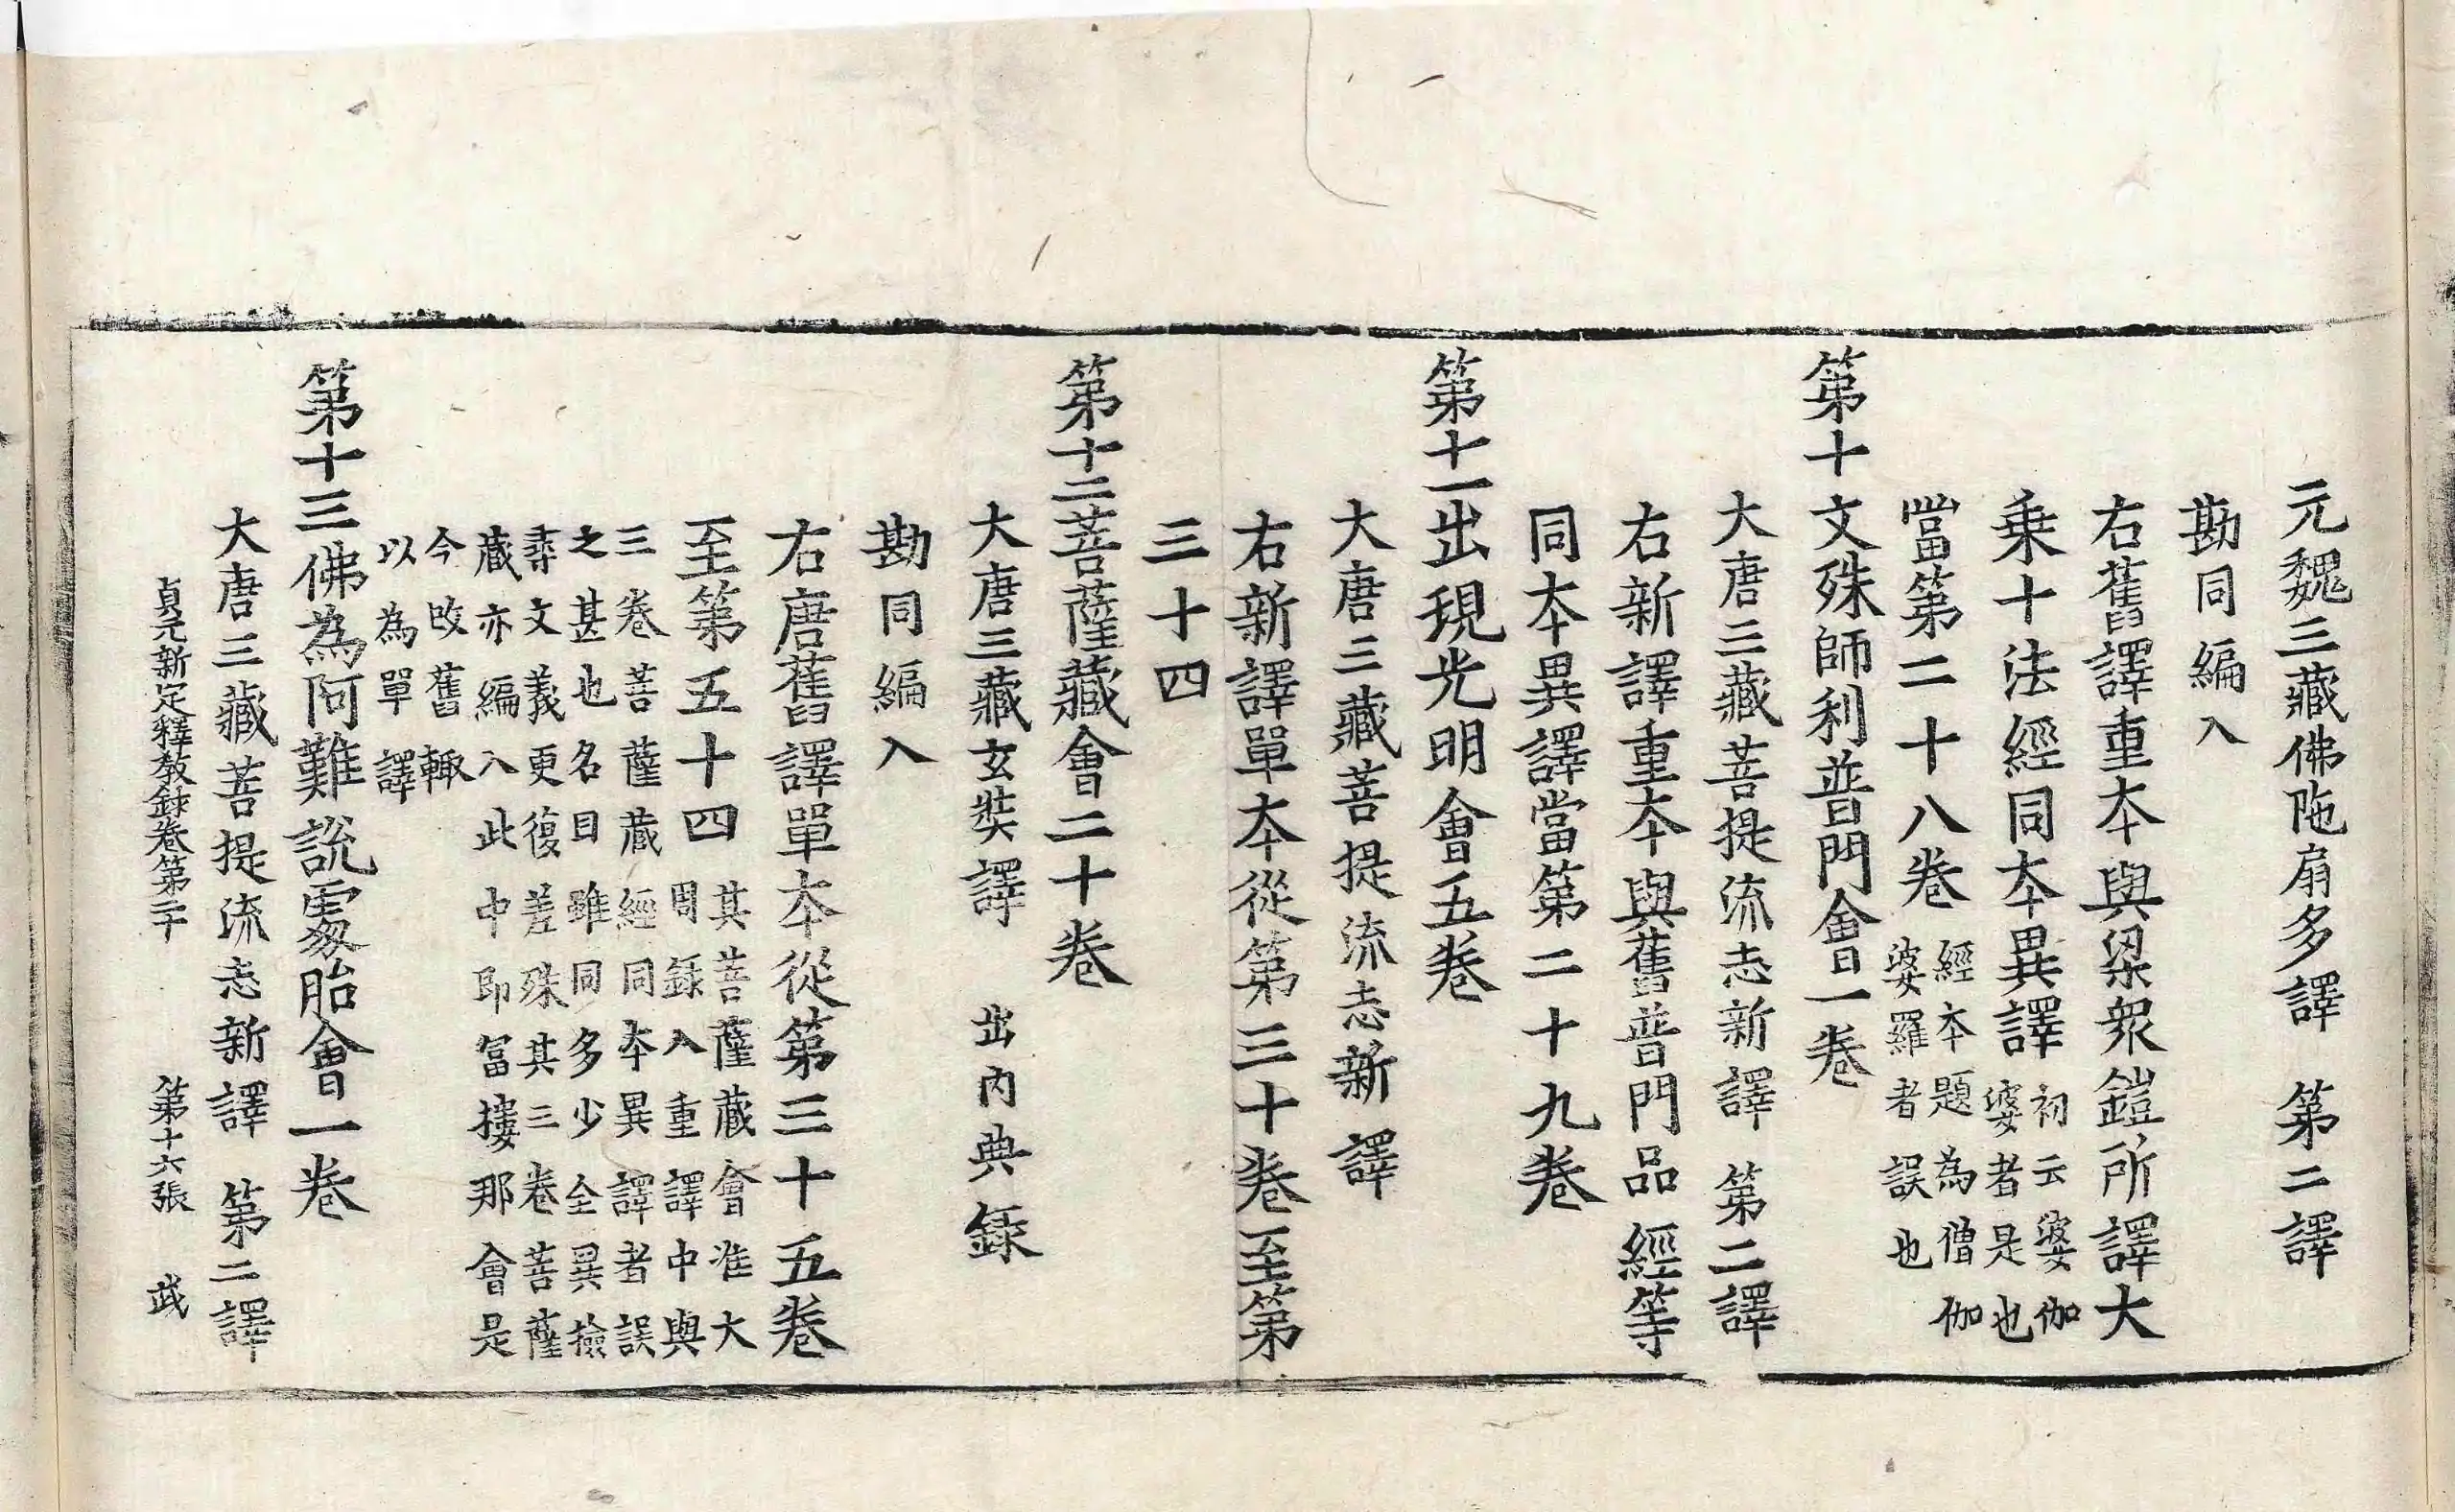 元魏三藏佛陁扇多譯　第二譯
勘同編入
右舊譯重本與梁衆鎧所譯大
乗十法經同本異譯　初云婆伽
婆者是也
當第二十八卷　經本題為僧伽
婆羅者誤也
第十文殊師利普門會一卷
大唐三藏菩提流志新譯　第二譯
右新譯重本與舊普門品經等
同本異譯當第二十九卷
第十一出現光明會五卷
大唐三藏菩提流志新譯
右新譯單本從第三十卷至第
三十四
第十二菩薩藏會二十卷
大唐三藏玄奘譯　出內典錄
勘同編入
右唐舊譯單本從第三十五卷
至第五十四　其菩薩藏會准大
周錄入重譯中與
三卷菩薩蔵經同本異譯者誤
之甚也名目雖同多少全異撿
尋文義更復差殊其三卷菩薩
蔵亦編入此中即冨摟那會是
今改舊輙
以為單譯
第十三佛為阿難說䖏胎會一卷
大唐三藏菩提流志新譯　第二譯
貞元新定釋教録卷第二十　第十六張　武